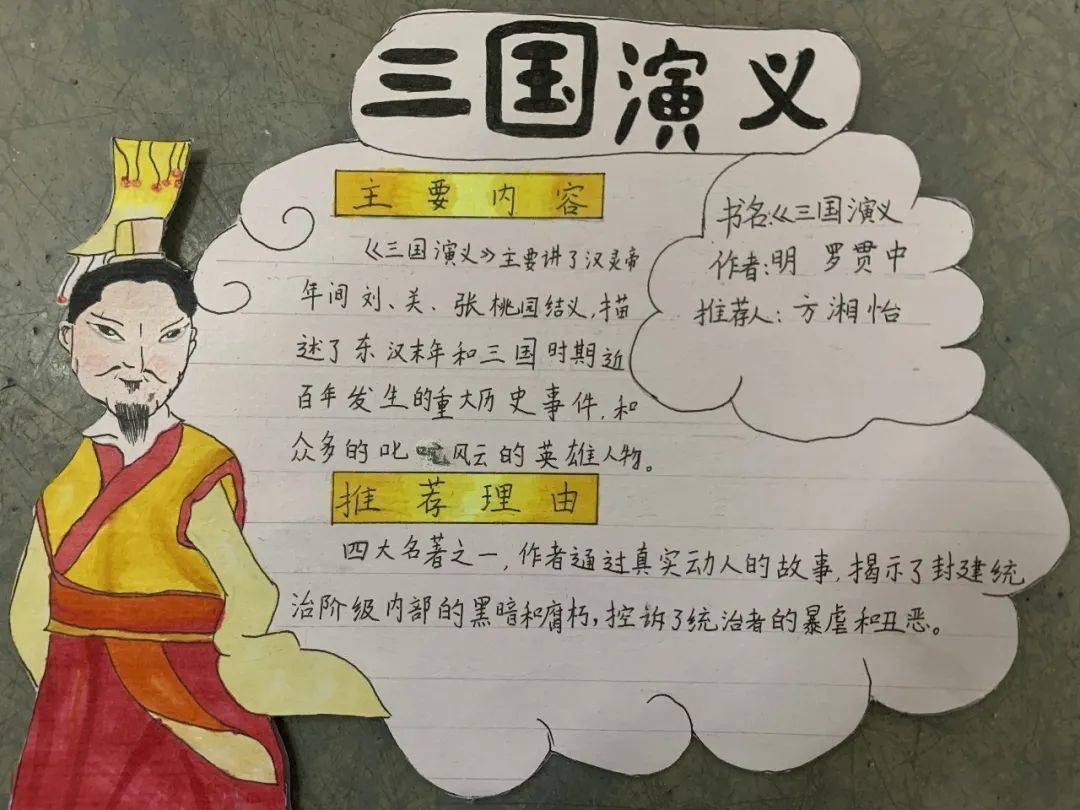 三国演义
主要内容
《三国演义》主要讲了汉灵帝
年间刘、关、张桃园结义,描
述了东汉末年和三国时期近
百年发生的重大历史事件,和
众多的叱风云的英雄人物。
推荐理由
四大名著之一,作者通过真实动人的故事,揭示了封建统
治阶级内部的黑暗和腐朽,控诉了统治者的暴虐和丑恶。
书名:《三国演义
作者:明 罗贯中
推荐人:方湘怡